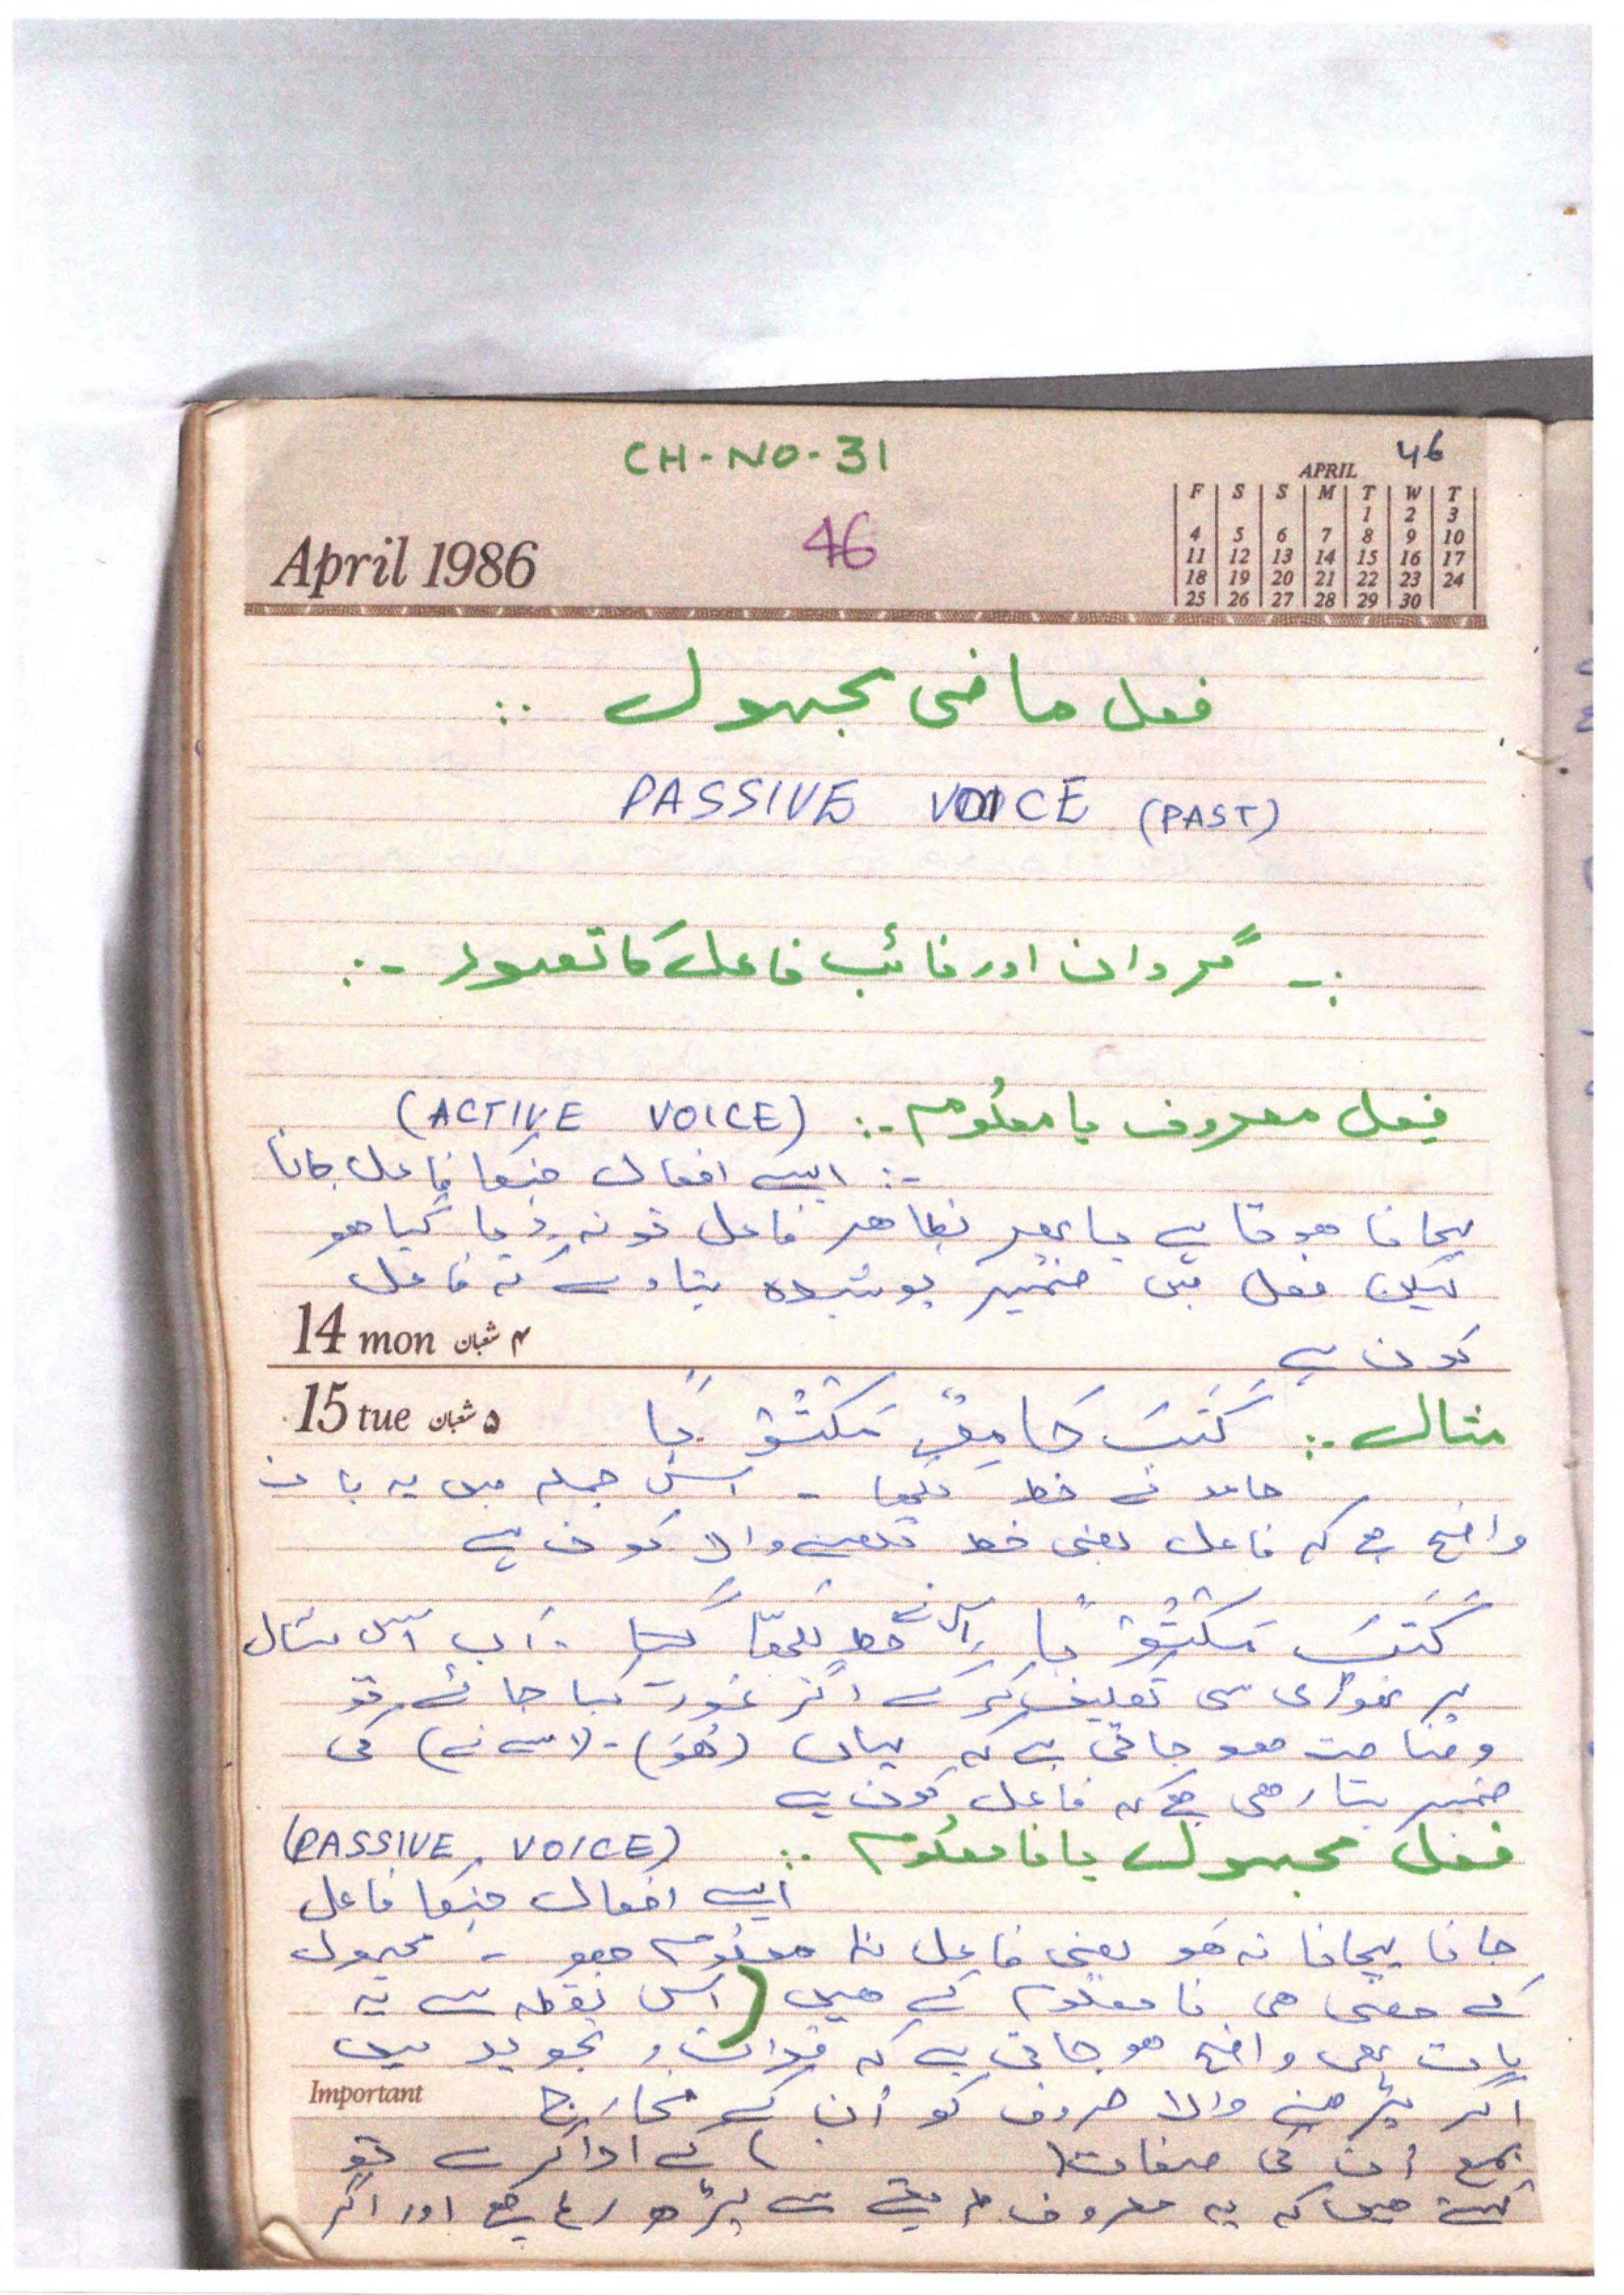 CH-NO-31
46
April 1986
46
APRIL
F S S M T W T
1 2 3
4 5 6 7 8 9 10
11 12 13 14 15 16 17
18 19 20 21 22 23 24
25 26 27 28 29 30
فعل ماضی مجہول :.
PASSIVE VOICE (PAST)
:- گردان اور نائب فاعل کا تصور -:
فعل معروف یا معلوم :- (ACTIVE VOICE)
:- ایسے افعال جنکا فاعل جانا
پہچانا ہوتا ہے یا پھر بظاھر فاعل تو نہ دیا گیا ھو
لیکن فعل میں ضمیر پوشیدہ بتادے کہ فاعل
14 mon ۴ شعبان
کون ہے
15 tue ۵ شعبان
مثال :- كَتَبَ حَامِدٌ مَكْتُوْبًا
حامد نے خط لکھا - اس جملہ میں یہ بات
واضح ہے کہ فاعل یعنی خط لکھنے والا کون ہے
كَتَبَ مَكْتُوْبًا اس نے خط لکھا - اب اس مثال
پر تھوڑی سی تکلیف کر کے اگر غور کیا جائے تو
وضاحت ھو جاتی ہے کہ یہاں (هُوَ) - (اس نے) کی
ضمیر بتا رھی ہے کہ فاعل کون ہے
فعل مجہول یا نامعلوم :- (PASSIVE VOICE)
ایسے افعال جنکا فاعل
جانا پہچانا نہ ھو یعنی فاعل نا معلوم ھو - مجہول
کے معنی ھی نا معلوم کے ھیں (اس نقطہ سے یہ
بات بھی واضح ھو جاتی ہے کہ قرأت و تجوید میں
Important
اگر پڑھنے والا حروف کو اُن کے مخارج
بمع اُن کی صفات ( ) کے ادا کرے تو
کہتے ھیں کہ یہ معروف طریقے سے پڑھ رہا ہے اور اگر